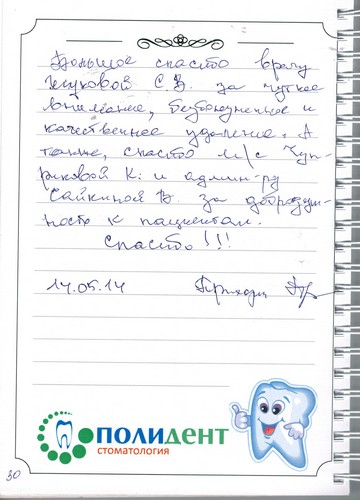 Большое спасибо врачу
Жуковой С.В. за чуткое
внимание, безболезненное и
качественное удаление. А
также, спасибо м/с Чуп-
риковой К. и админ-ру
Сайкиной В. за добродуш-
ность к пациентам.
Спасибо!!!
14.05.14
ПОЛИДЕНТ
СТОМАТОЛОГИЯ
30